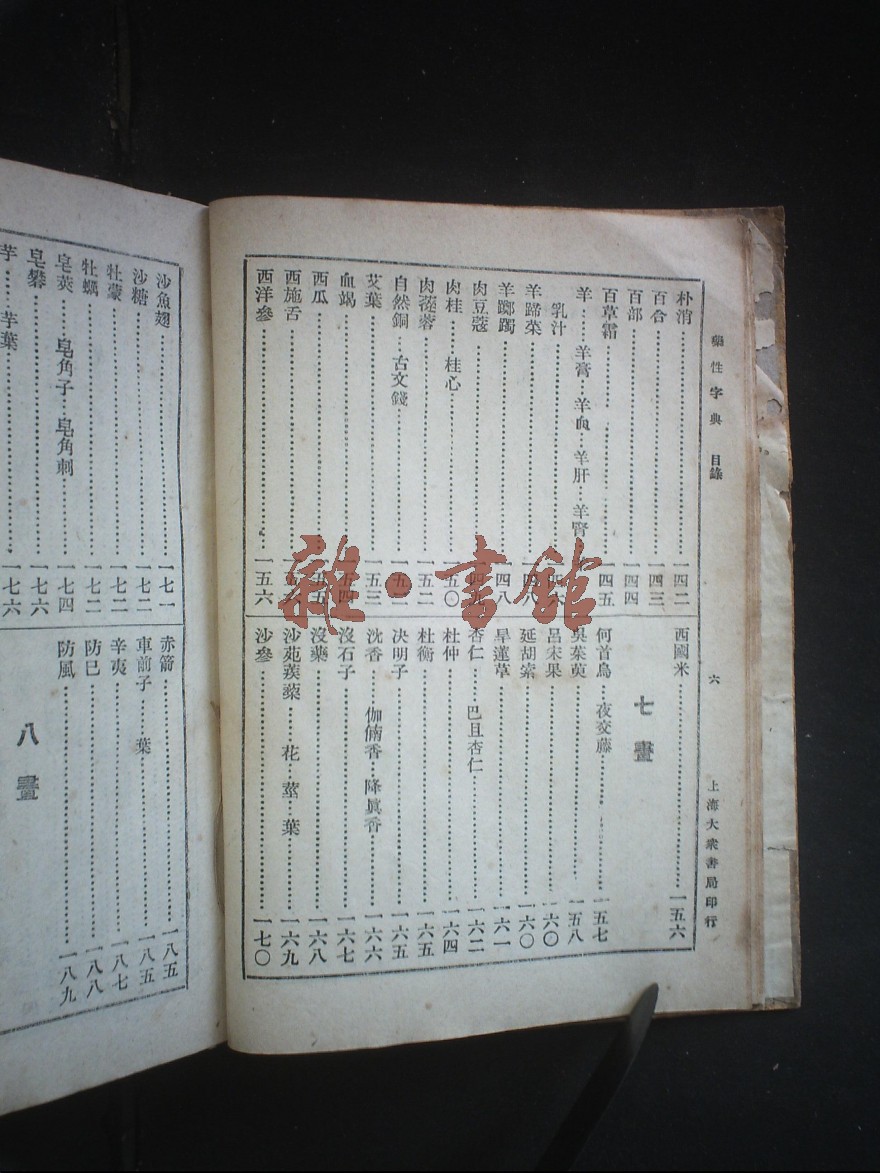 藥性字典 目錄 六 上海大衆書局印行
朴消 一四二
百合 一四三
百部 一四四
百草霜 一四五
羊 羊膏 羊血 羊肝 羊腎
乳汁 一四六
羊蹄菜 一四八
羊躑躅 一四八
肉豆蔻 一四九
肉桂 桂心 一五〇
肉蓯蓉 一五二
自然銅 古文錢
艾葉 一五三
血竭 一五四
西瓜 一五五
西施舌
西洋參 一五六
西國米 一五六
七畫
何首烏 夜交藤 一五七
吳茱萸 一五八
呂宋果 一六〇
延胡索 一六〇
旱蓮草 一六一
杏仁 巴且杏仁 一六二
杜仲 一六四
杜衡 一六五
決明子 一六五
沈香 伽僃香 降眞香 一六六
沒石子 一六七
沒藥 一六八
沙苑蒺藜 花 莖 葉 一六九
沙參 一七〇
沙魚翅 一七一
沙糖 一七二
牡蒙 一七二
牡蠣 一七二
皂莢 皂角子 皂角刺 一七四
皂礬 一七六
芋 芋葉 一七六
赤箭 一八五
車前子 葉 一八五
辛夷 一八七
防巳 一八八
防風 一八九
八畫
雜·書館